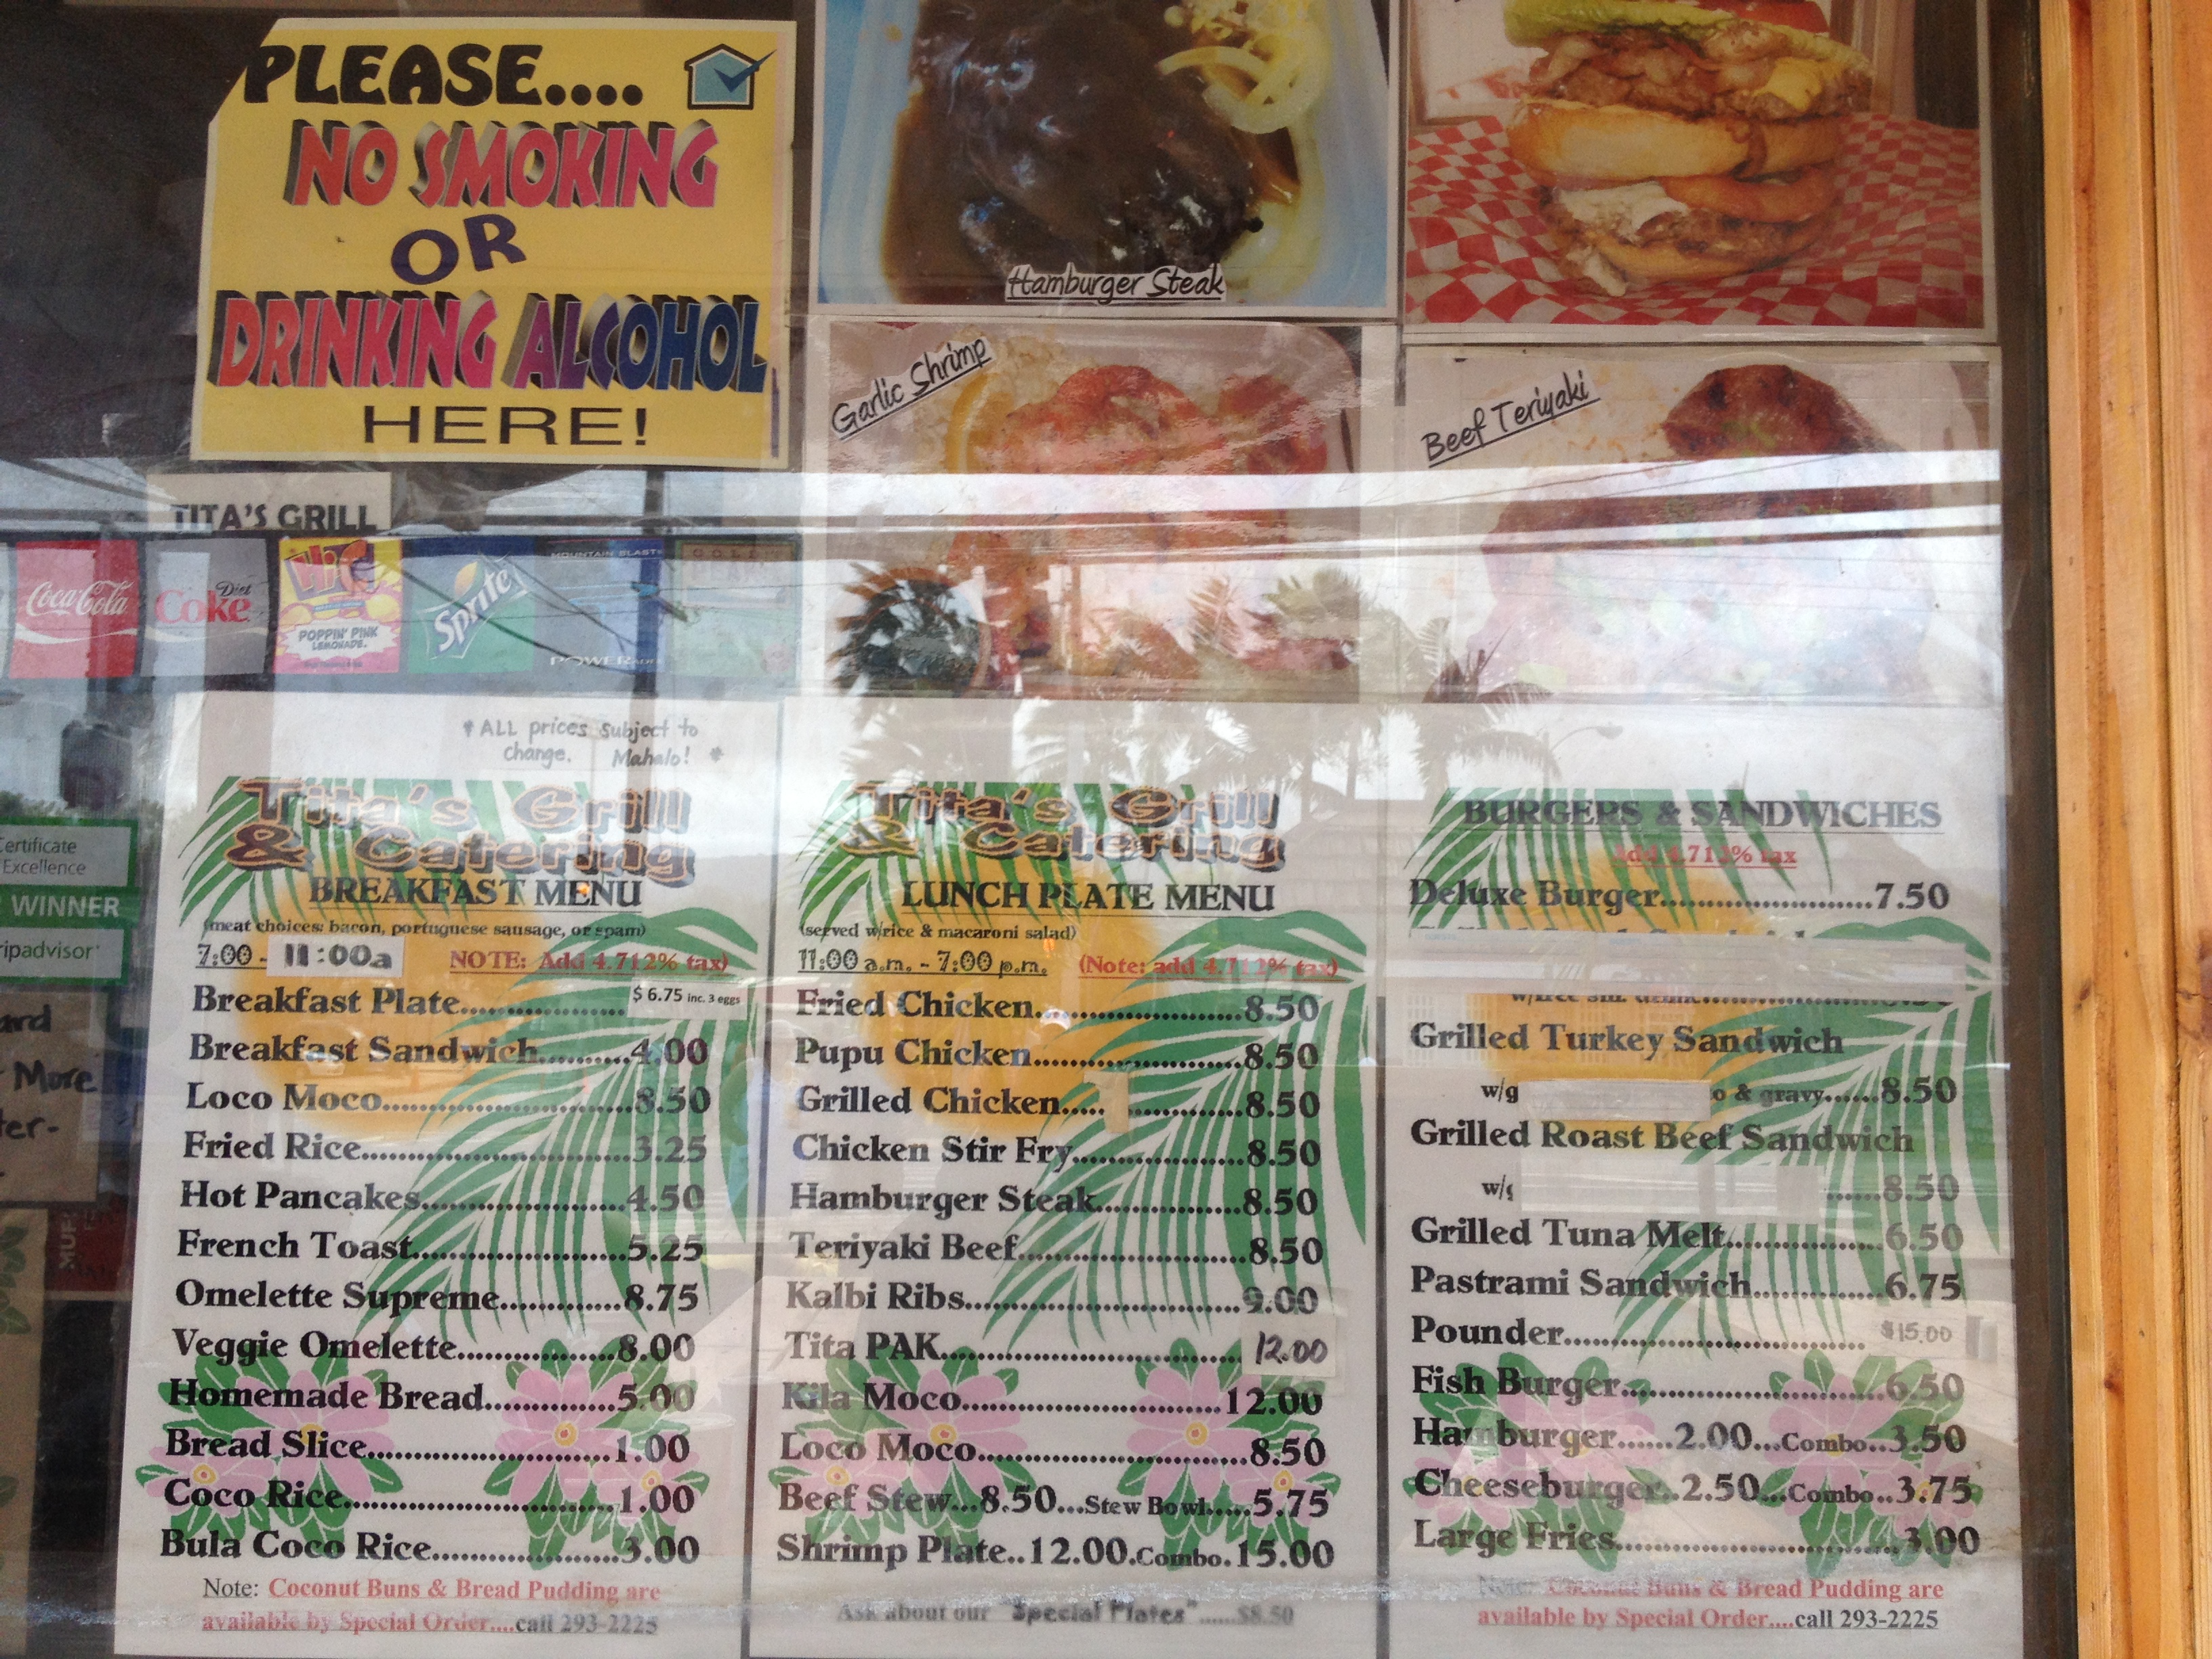 PLEASE....
NO SMOKING
OR
DRINKING ALCOHOL
HERE!
Hamburger Steak
Garlic Shrimp
Beef Teriyaki
TITA'S GRILL
Coca-Cola
Diet
Coke
Hi-C
POPPIN' PINK
LEMONADE.
Sprite
MOUNTAIN BLAST
POWERADE
GOLD
Certificate
Excellence
WINNER
ripadvisor
ard
More
ter-
*ALL prices subject to
change. Mahalo! *
Tita's Grill
& Catering
BREAKFAST MENU
(meat choices: bacon, portuguese sausage, or spam)
7:00 - 11:00a NOTE: Add 4.712% tax)
Breakfast Plate.................... $6.75 inc. 3 eggs
Breakfast Sandwich..........4.00
Loco Moco...........................8.50
Fried Rice.............................3.25
Hot Pancakes......................4.50
French Toast.......................5.25
Omelette Supreme.............8.75
Veggie Omelette.................8.00
Homemade Bread..............5.00
Bread Slice..........................1.00
Coco Rice.............................1.00
Bula Coco Rice....................3.00
Note: Coconut Buns & Bread Pudding are
available by Special Order....call 293-2225
Tita's Grill
& Catering
LUNCH PLATE MENU
(served w/rice & macaroni salad)
11:00 a.m. - 7:00 p.m. (Note: add 4.712% tax)
Fried Chicken......................8.50
Pupu Chicken......................8.50
Grilled Chicken..... .............8.50
Chicken Stir Fry..................8.50
Hamburger Steak...............8.50
Teriyaki Beef.......................8.50
Kalbi Ribs.............................9.00
Tita PAK................................ 12.00
Kila Moco............................12.00
Loco Moco............................8.50
Beef Stew...8.50...Stew Bowl.....5.75
Shrimp Plate..12.00.Combo.15.00
Ask about our "Special Plates"......$8.50
BURGERS & SANDWICHES
Add 4.713% tax
Deluxe Burger.........................7.50
Grilled Turkey Sandwich
w/g o & gravy......8.50
Grilled Roast Beef Sandwich
......8.50
Grilled Tuna Melt..................6.50
Pastrami Sandwich...............6.75
Pounder.................................. $15.00
Fish Burger............................6.50
Hamburger......2.00...Combo..3.50
Cheeseburger..2.50...Combo..3.75
Large Fries..............................3.00
Note: Coconut Buns & Bread Pudding are
available by Special Order....call 293-2225